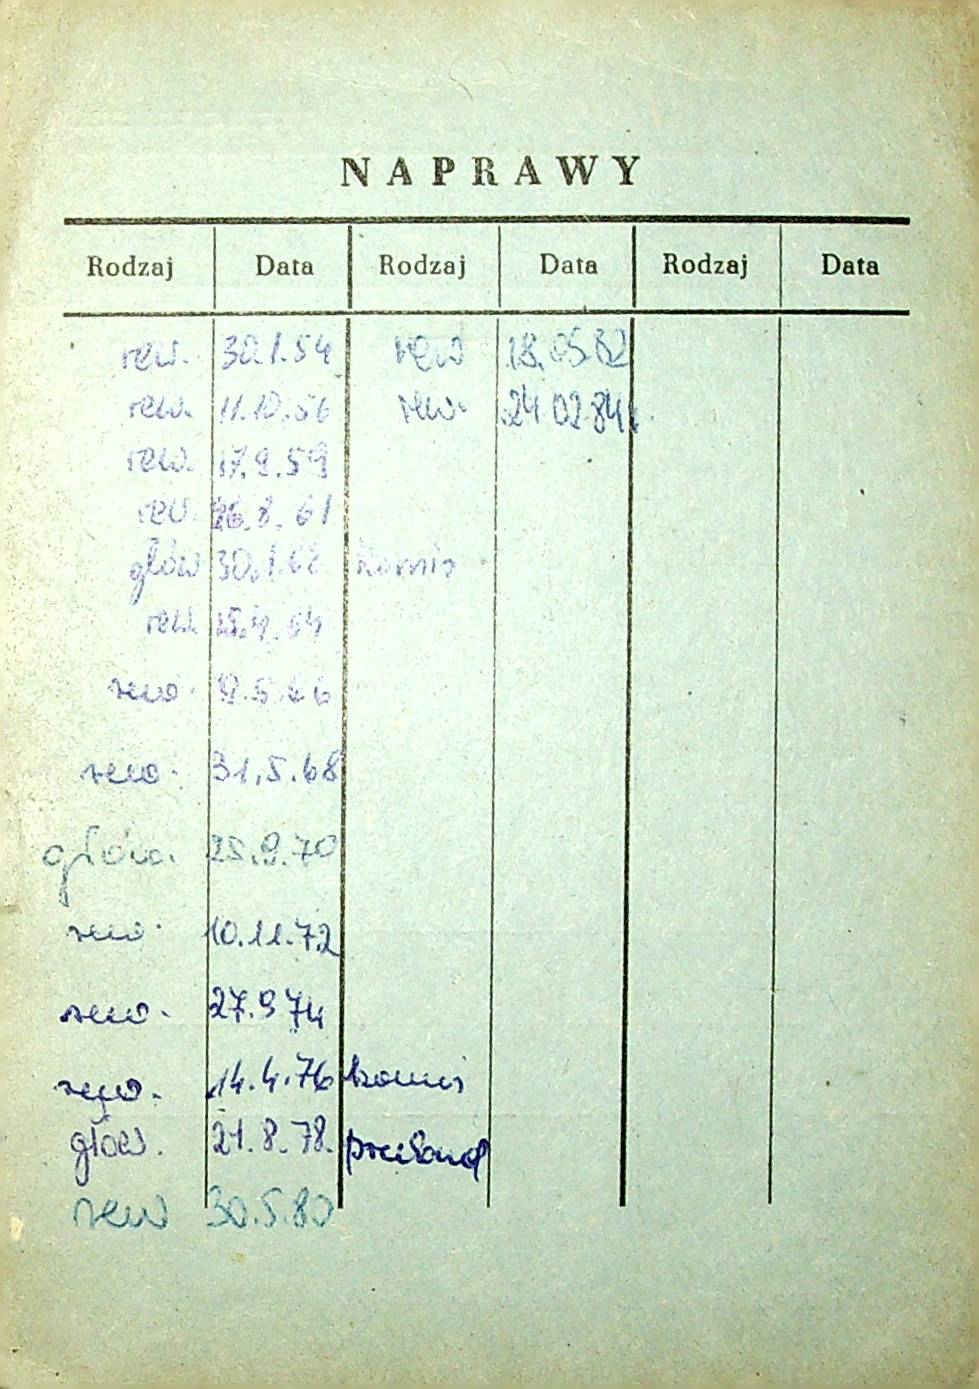 NAPRAWY
Rodzaj Data Rodzaj Data Rodzaj Data
rew. 30.1.54 rew 18.05.82
rew. 11.10.56 rew. 24.02.84
rew. 17.9.59
rew. 26.8.61
głów 30.1.62 komis
rew.
rew. 9.5.66
rew. 31.5.68
główn. 25.9.70
rew. 10.11.72
rew. 27.9.74
rew. 14.4.76 komis
głów. 21.8.78.
rew 30.5.80